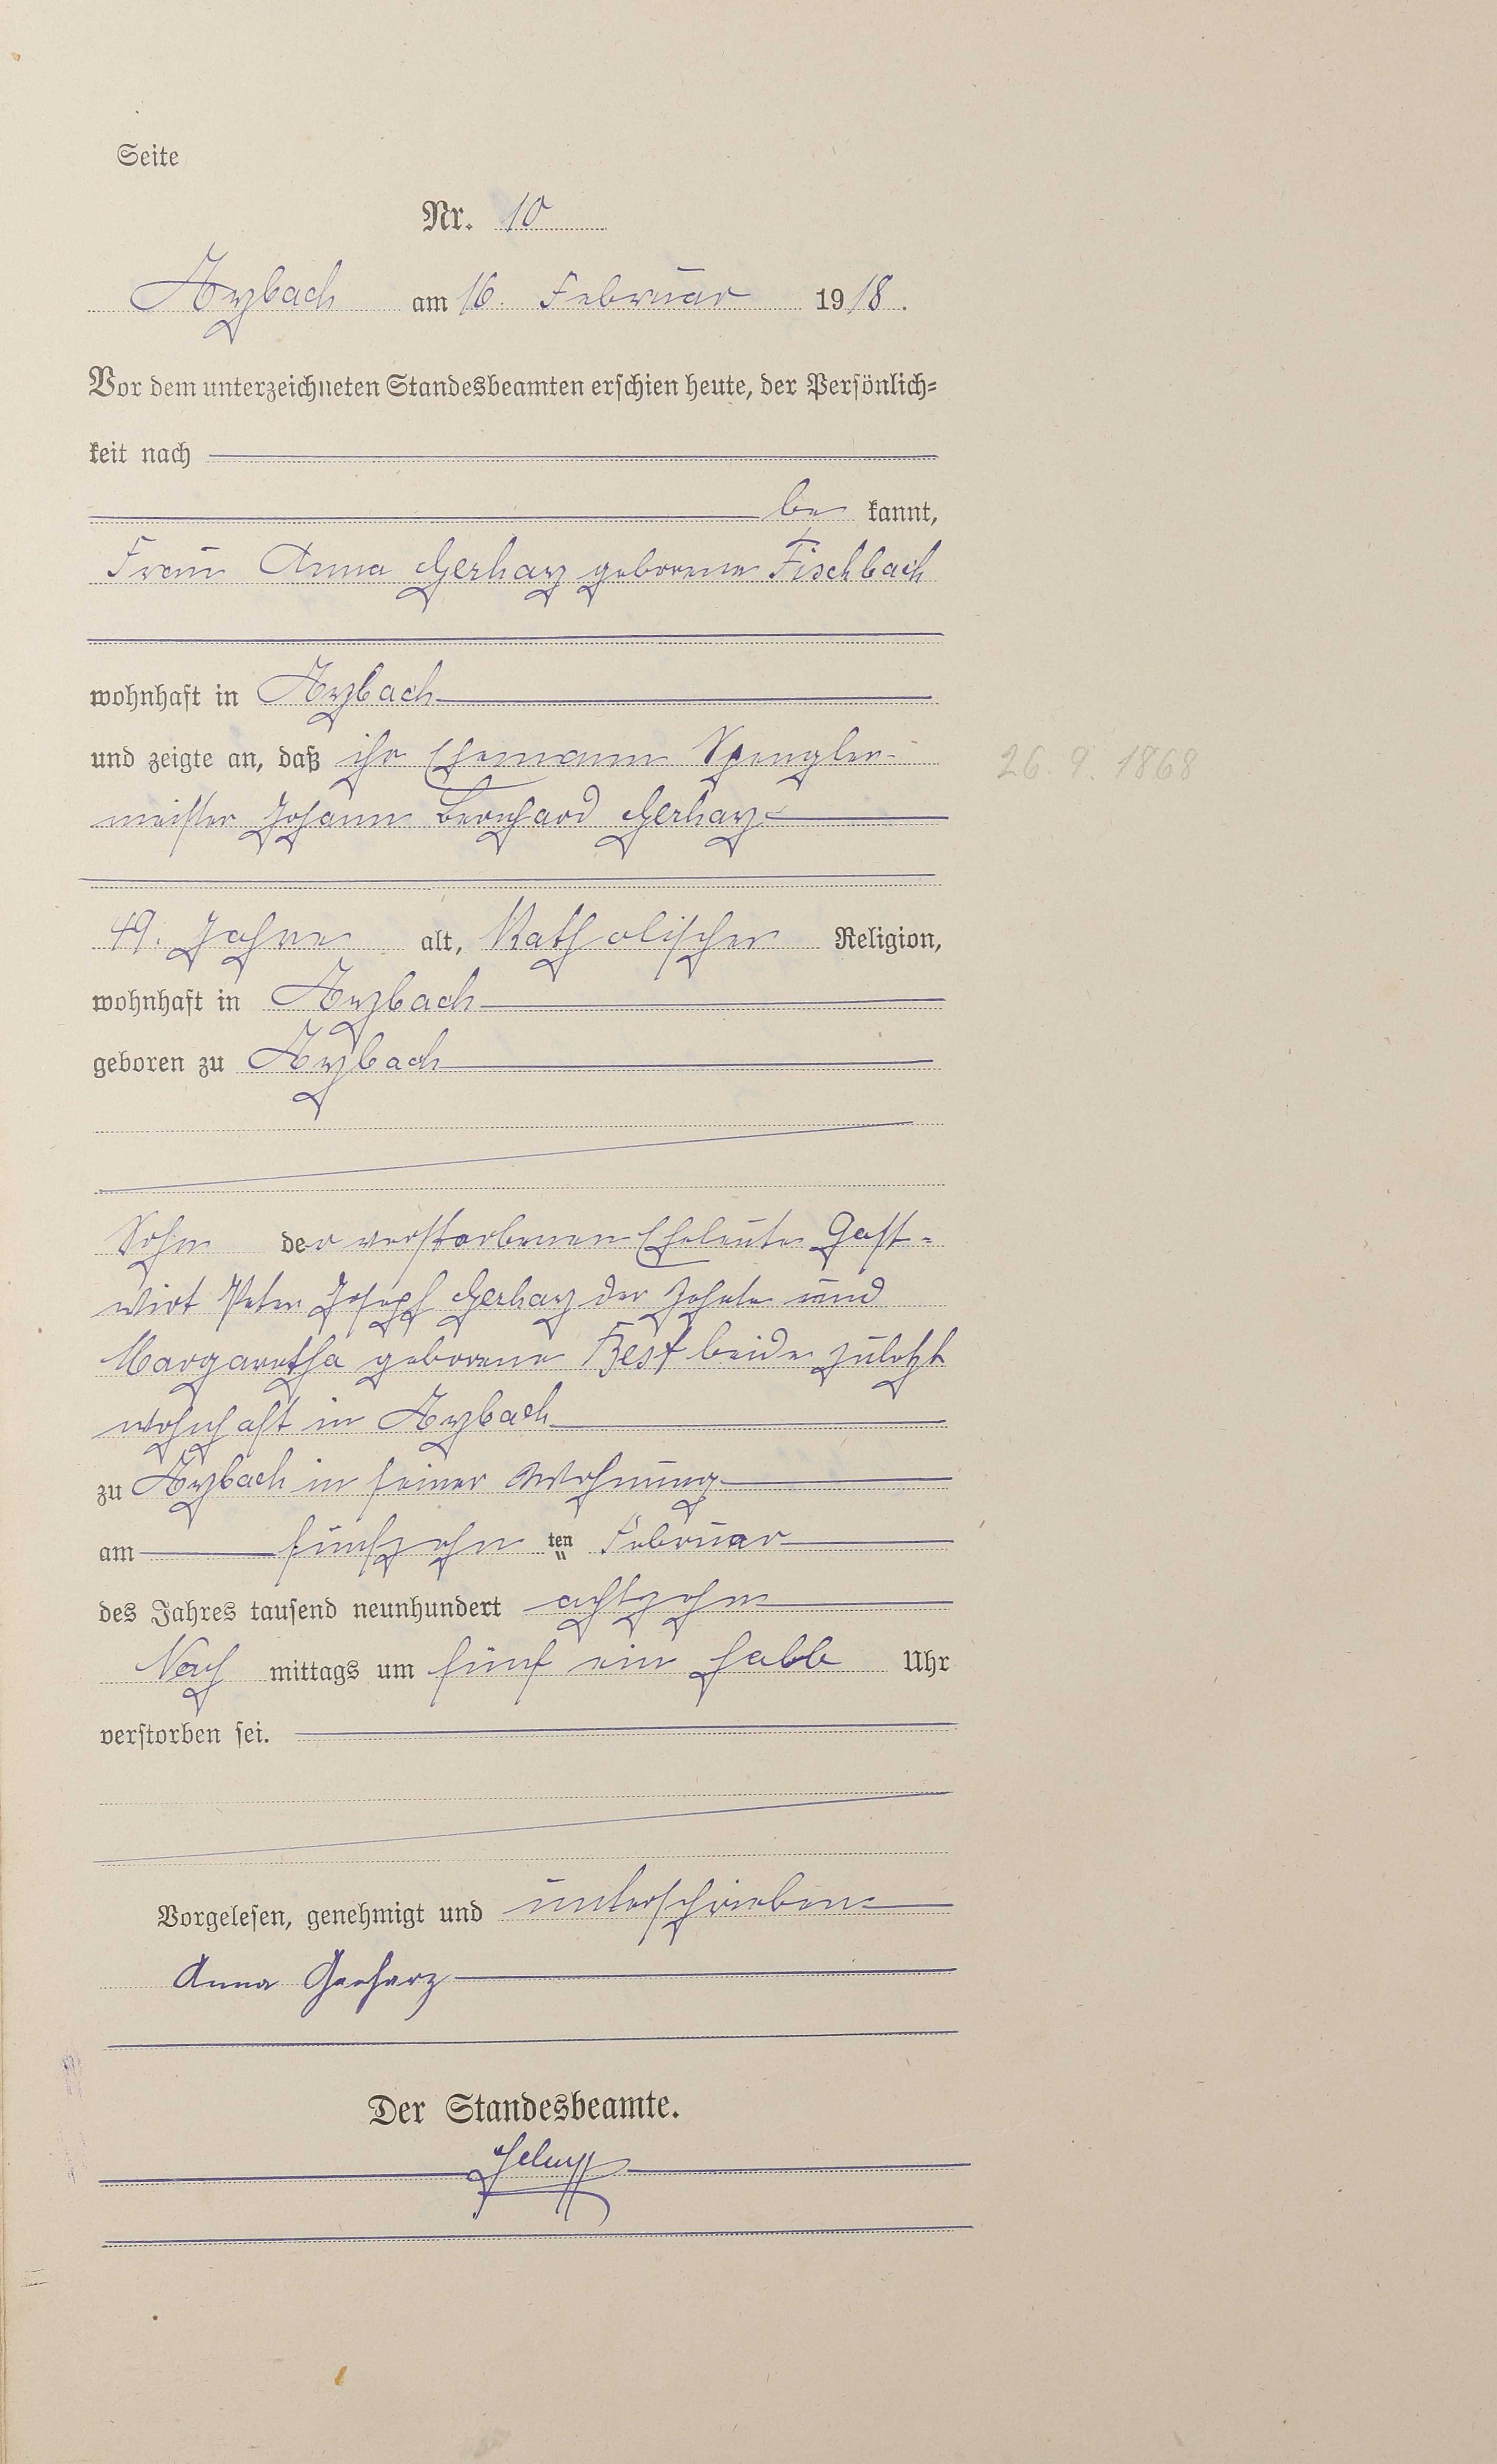 Seite
Nr. 10
Arzbach am 16. Februar 1918.
Vor dem unterzeichneten Standesbeamten erschien heute, der Persönlich=
keit nach
be kannt,
Frau Anna Gerharz geborene Fischbach
wohnhaft in Arzbach
und zeigte an, daß ihr Ehemann Spengler-
meister Johann Bernhard Gerharz
49. Jahre alt, Katholischer Religion,
wohnhaft in Arzbach
geboren zu Arzbach
Sohn der verstorbenen Eheleute Gast=
wirt Peter Joseph Gerharz der Zehnte und
Margaretha geborene Best beide zuletzt
wohnhaft in Arzbach
zu Arzbach in seiner Wohnung
am fünfzehn ten Februar
des Jahres tausend neunhundert achtzehn
Nach mittags um fünf ein halb Uhr
verstorben sei.
Vorgelesen, genehmigt und unterschrieben
Anna Gerharz
Der Standesbeamte.
26. 9. 1868